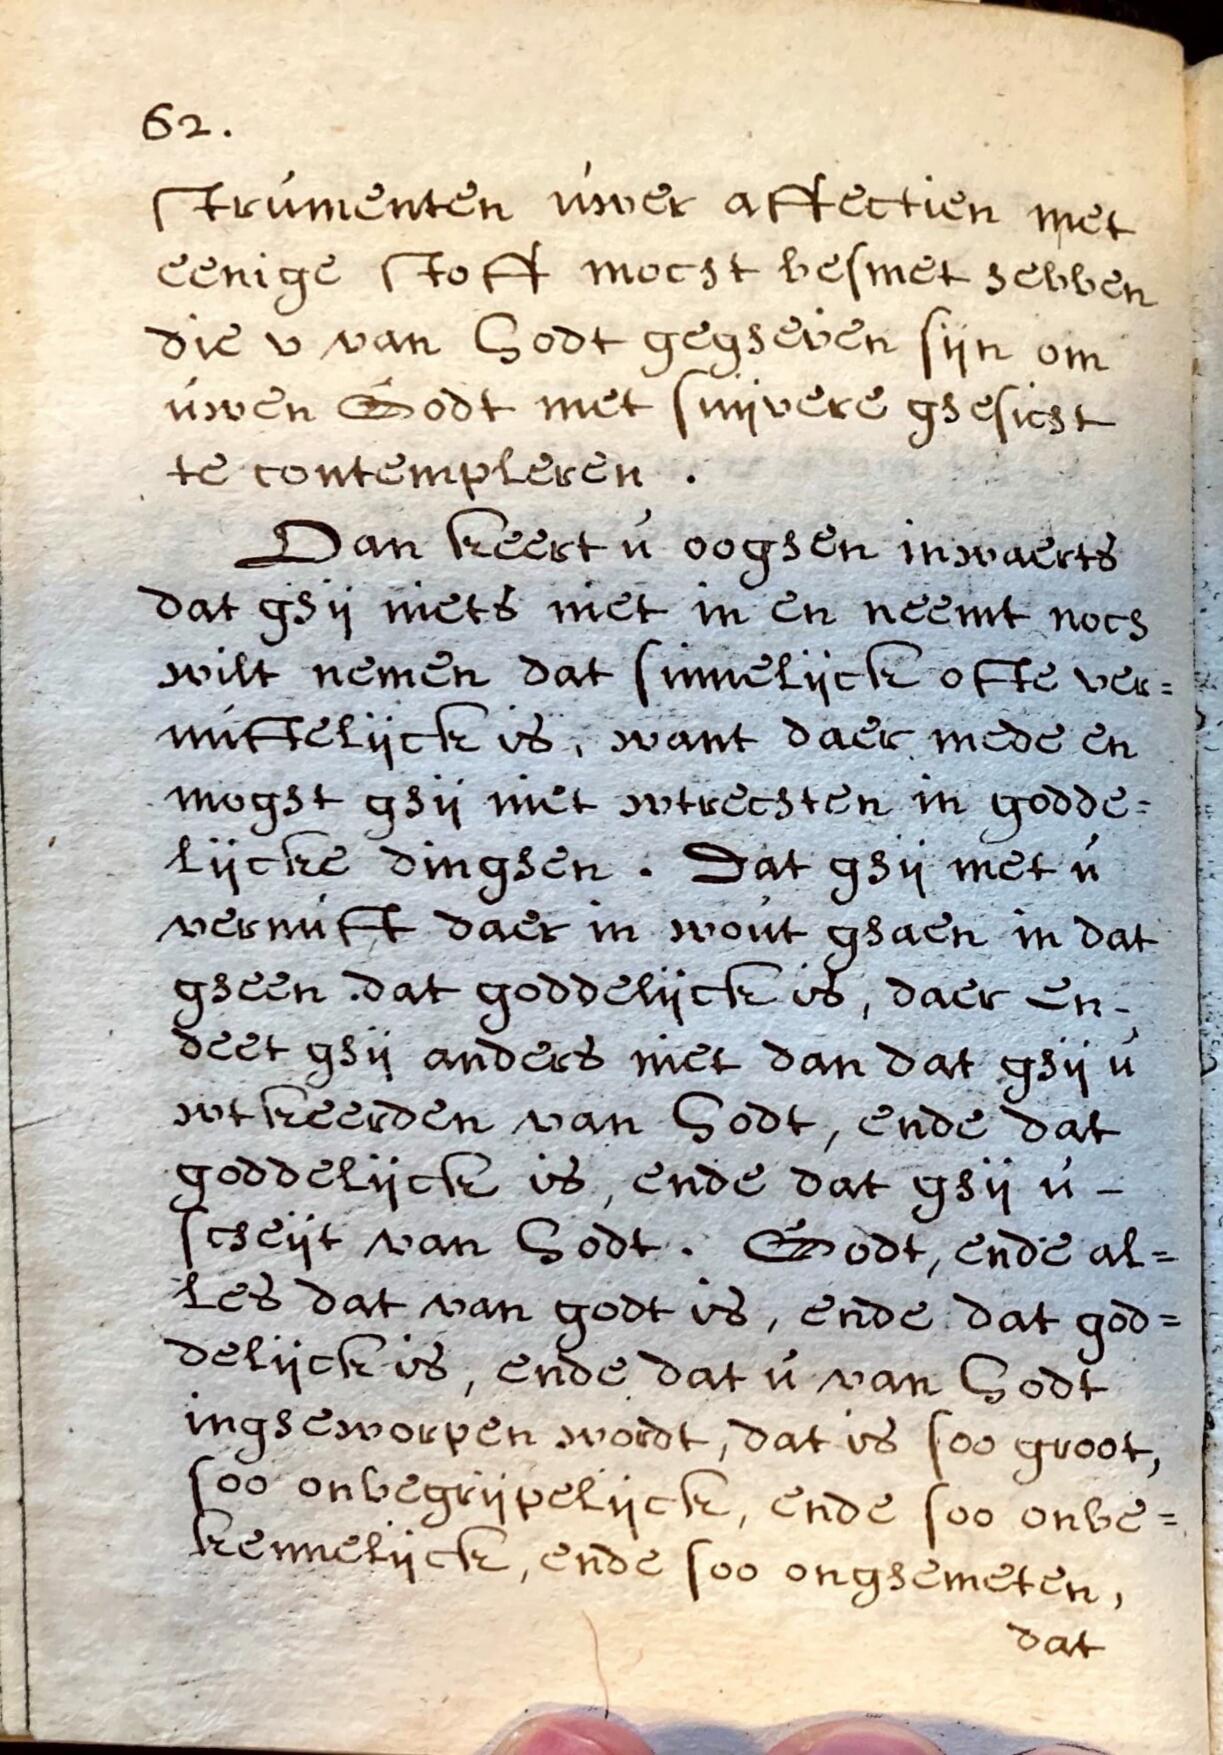 62.
strúmenten úwer affectien met
eenige stoff mocht besmet hebben
die v van Godt gegheven sijn om
úwen Godt met suijvere ghesicht
te contempleren .
Dan keert ú ooghen inwaerts
dat ghij niets niet in en neemt noch
wilt nemen dat sinnelijck ofte ver=
núftelijck is, want daer mede en
moght ghij niet wtrechten in godde=
lijcke dinghen . Dat ghij met ú
vernúft daer in woút ghaen in dat
gheen dat goddelijck is, daer en-
deet ghij anders niet dan dat ghij ú
wtkeerden van Godt, ende dat
goddelijck is, ende dat ghij ú -
scheijt van Godt. Godt, ende al=
les dat van godt is, ende dat god=
delijck is, ende dat ú van Godt
ingheworpen wordt, dat is soo groot,
soo onbegrijpelijck, ende soo onbe=
kennelijck, ende soo onghemeten,
dat